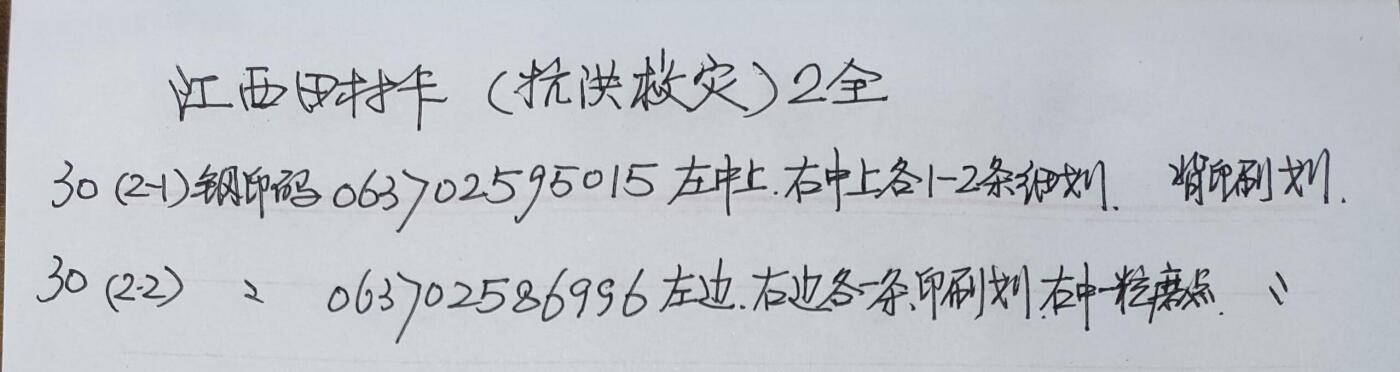 江西田村卡（抗洪救灾）2全
30 (2-1) 钢印码 063702595015 左中上.右中上各1-2条细划. 背印刷划.
30 (2.2) 〃 063702586996 左边.右边各一条印刷划.右中一粒磨点. 〃